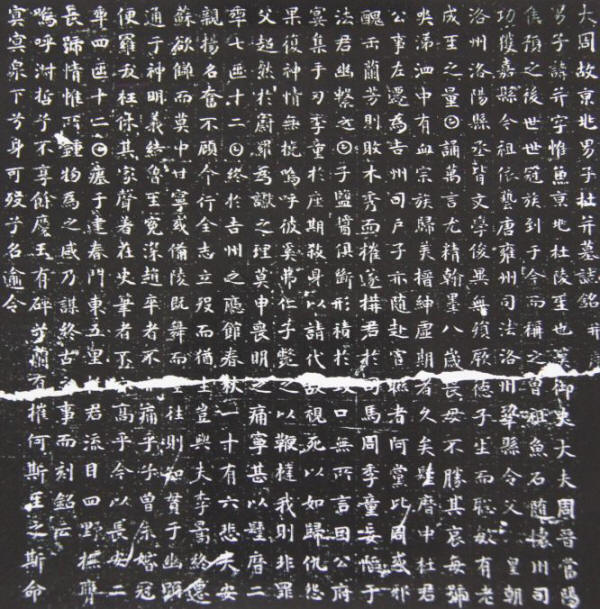 大周故京兆男子杜并墓誌銘 并序
男子諱并字惟兼京兆杜陵𤯔也漢御史大夫周晉當陽
侯預之後世世冠族到于今而稱之曾祖魚石隨懷州司
功獲嘉縣令祖依藝唐雍州司法洛州鞏縣令父皇朝
洛州洛陽縣丞皆文學俊異無殞厥德子𤯔而聰敏有老
成𤯔之量〇誦萬言尤精翰墨八歲喪母不勝其哀每號
哭涕泗中有血宗族歸美搢紳虛期者久矣聖曆中杜君
公事左遷為吉州司戶子亦隨赴官聯者阿黨比周惑邪
醜正蘭芳則敗木秀而摧遂搆君於司馬周季童妄陷于
法君幽縶之〇子鹽醬俱斷形積於毀口無所言因公府
宴集手刃季童於座期殺身以請代故視死以如歸仇怨
果復神情無撓嗚呼彼奚弗仁子斃之以鞭撻我則非罪
父超然於罻羅為讞之理莫申喪明之痛寧甚以聖曆二
𠡦七匜十二〇終於吉州之廳館春秋一十有六悲夫安
親揚名奮不顧命行全志立歿而猶生豈與夫李
蘇欲讎而莫中甘寧或備陵既舞而則知貫于幽顯
通于神明義結魯王冤深趙卒者不乎子曾未婚冠
便羅夭枉條其家聲者在史筆者不其高乎今以長安二
𠡦四匜十二〇瘞于建春門東五里杜君流目四野撫膺
長號情惟所鍾物為之感乃謀終古之事而刻銘云
嗚呼淑哲兮不享餘慶玉有碎兮蘭有摧何斯𤯔之斯命
冥冥泉下兮身可歿兮名逾令